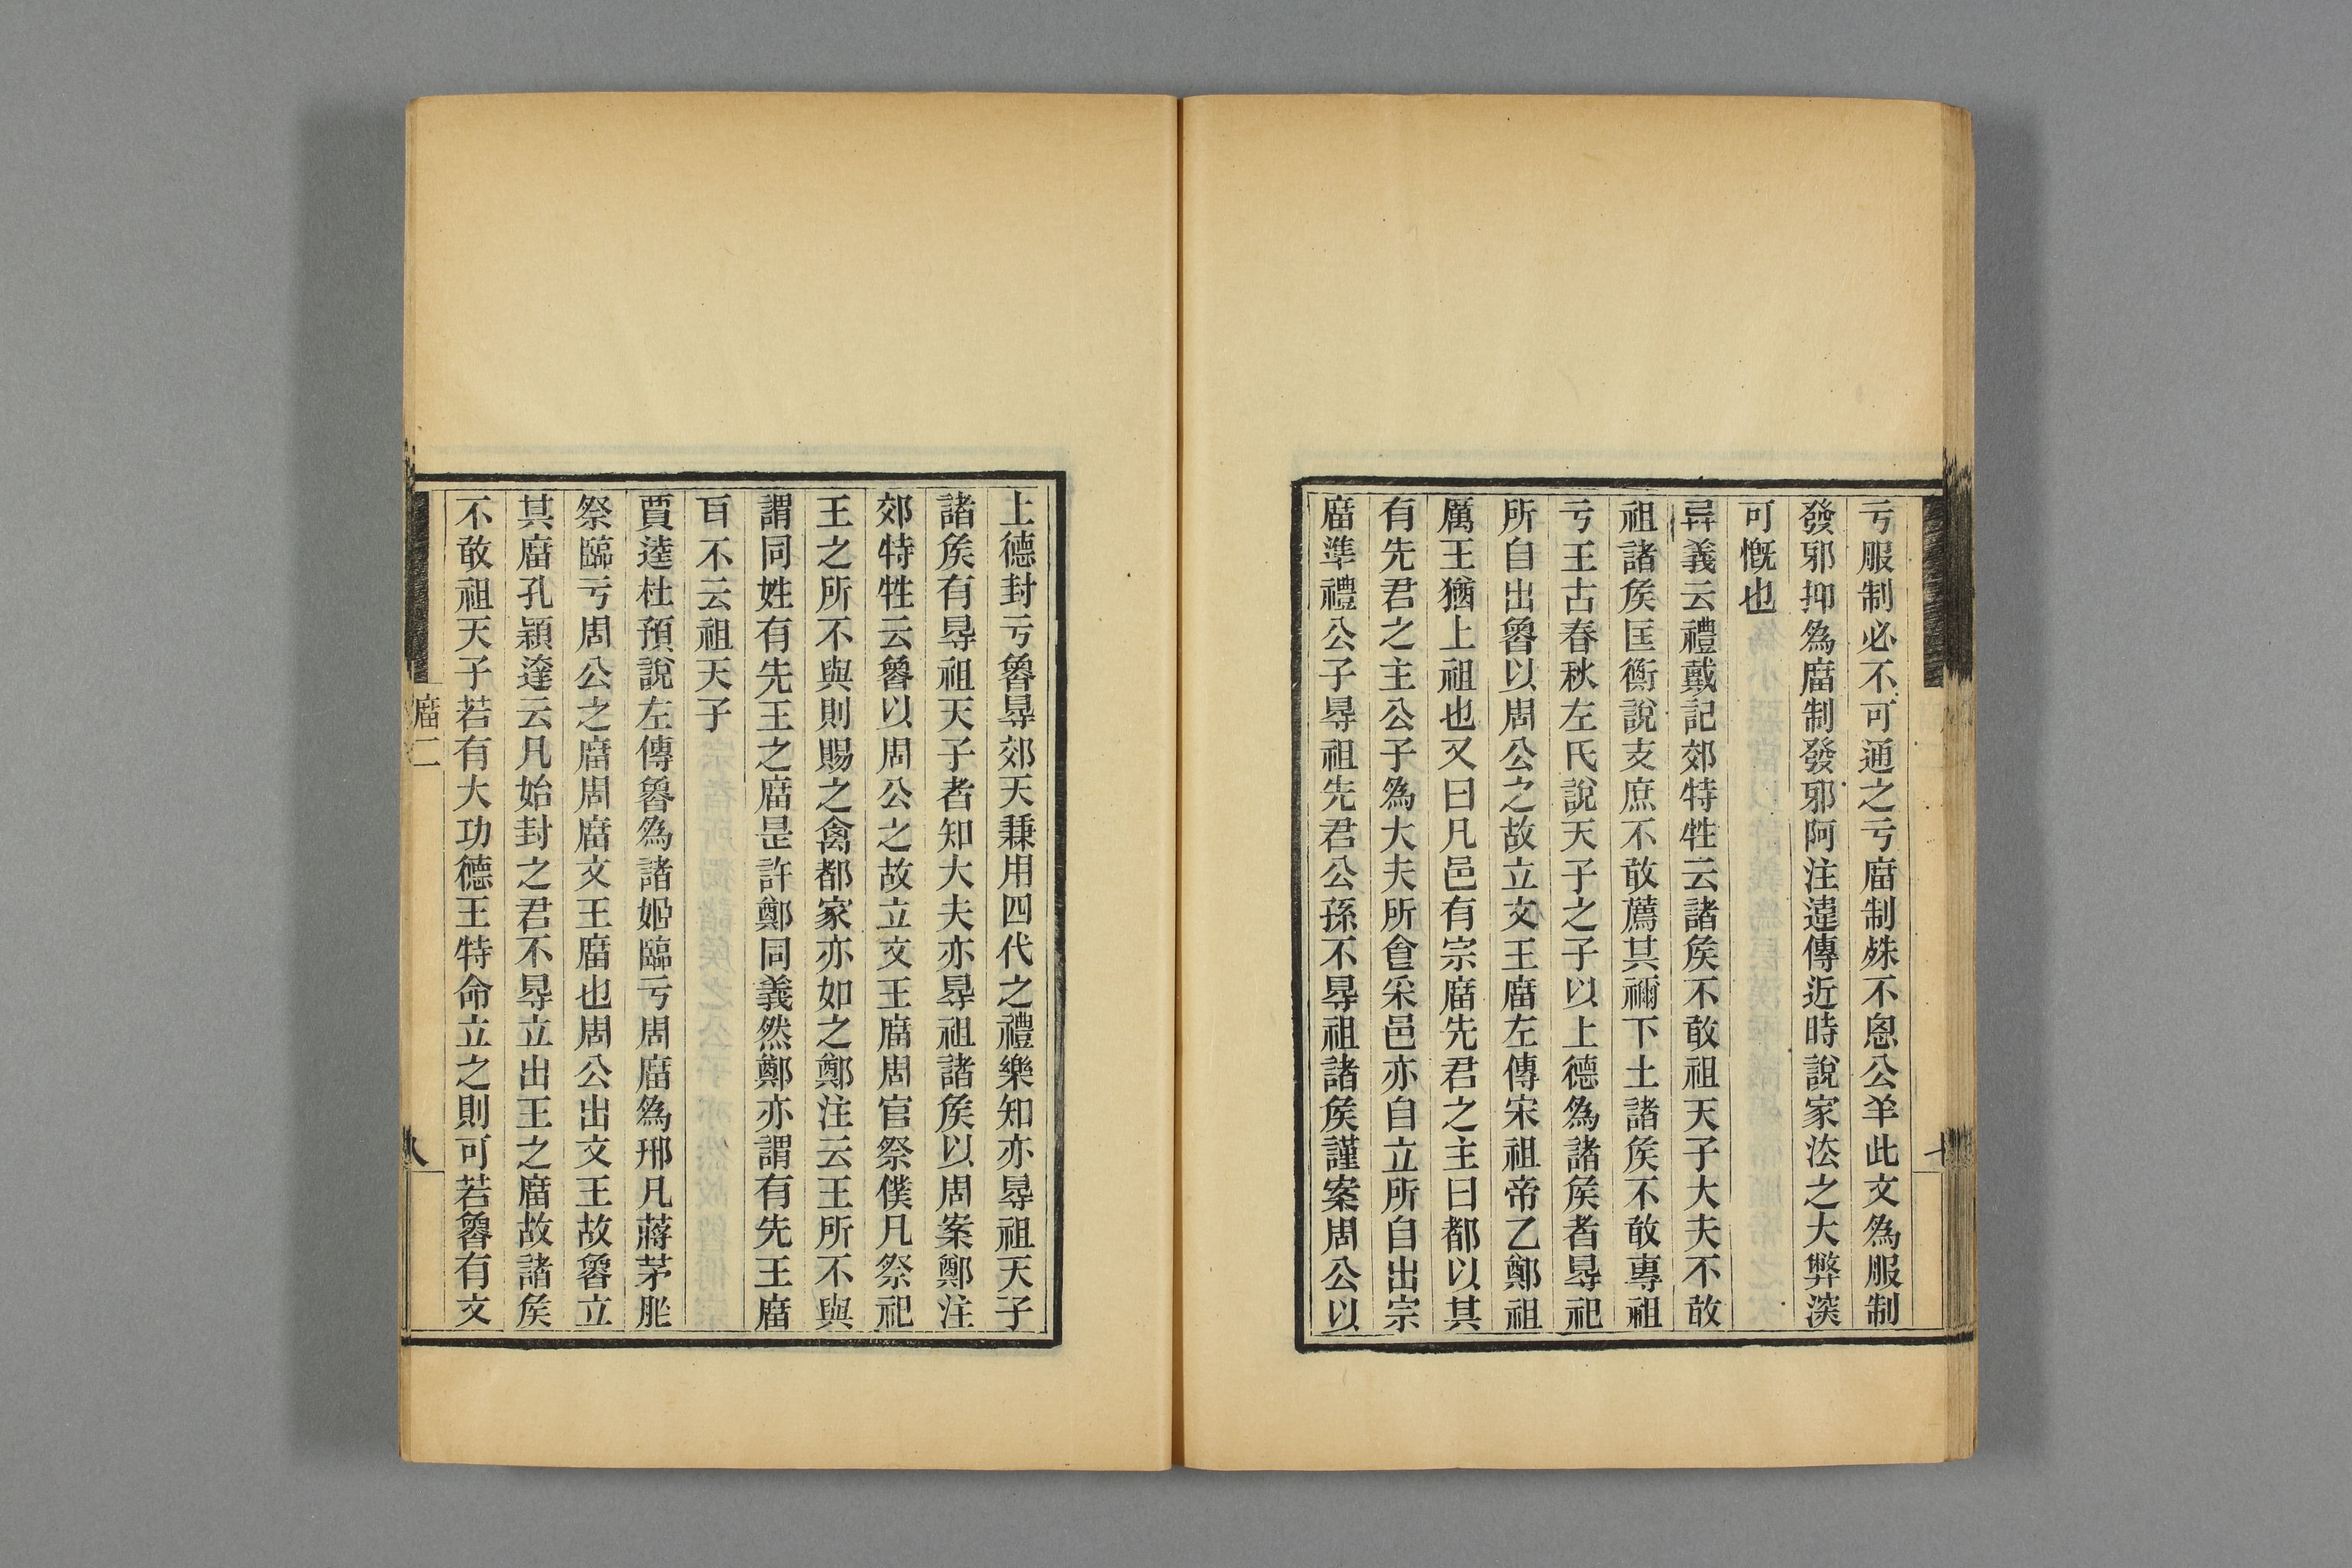 亏服制必不可通之亏庿制殊不悤公羊此文為服制
發邪抑為庿制發邪阿注違傳近時說家㳒之大弊湥
可慨也
異義云禮戴記郊特牲云諸矦不敢祖天子大夫不敢
祖諸矦匡衡說支庶不敢薦其禰下土諸矦不敢專祖
亏王古春秋左氏說天子之子以上德為諸矦者㝵祀
所自出魯以周公之故立文王庿左傳宋祖帝乙鄭祖
厲王猶上祖也又曰凡邑有宗庿先君之主曰都以其
有先君之主公子為大夫所食采邑亦自立所自出宗
庿準禮公子㝵祖先君公孫不㝵祖諸矦謹案周公以
上德封亏魯㝵郊天兼用四代之禮樂知亦㝵祖天子
諸矦有㝵祖天子者知大夫亦㝵祖諸矦以周案鄭注
郊特牲云魯以周公之故立文王庿周官祭僕凡祭祀
王之所不與則賜之禽都家亦如之鄭注云王所不與
謂同姓有先王之庿是許鄭同義然鄭亦謂有先王庿
百不云祖天子
賈逵杜預說左傳魯為諸姬臨亏周庿為邢凡蔣茅胙
祭臨亏周公之庿周庿文王庿也周公出文王故魯立
其庿孔穎達云凡始封之君不㝵立出王之庿故諸矦
不敢祖天子若有大功德王特命立之則可若魯有文
庿二
八
七